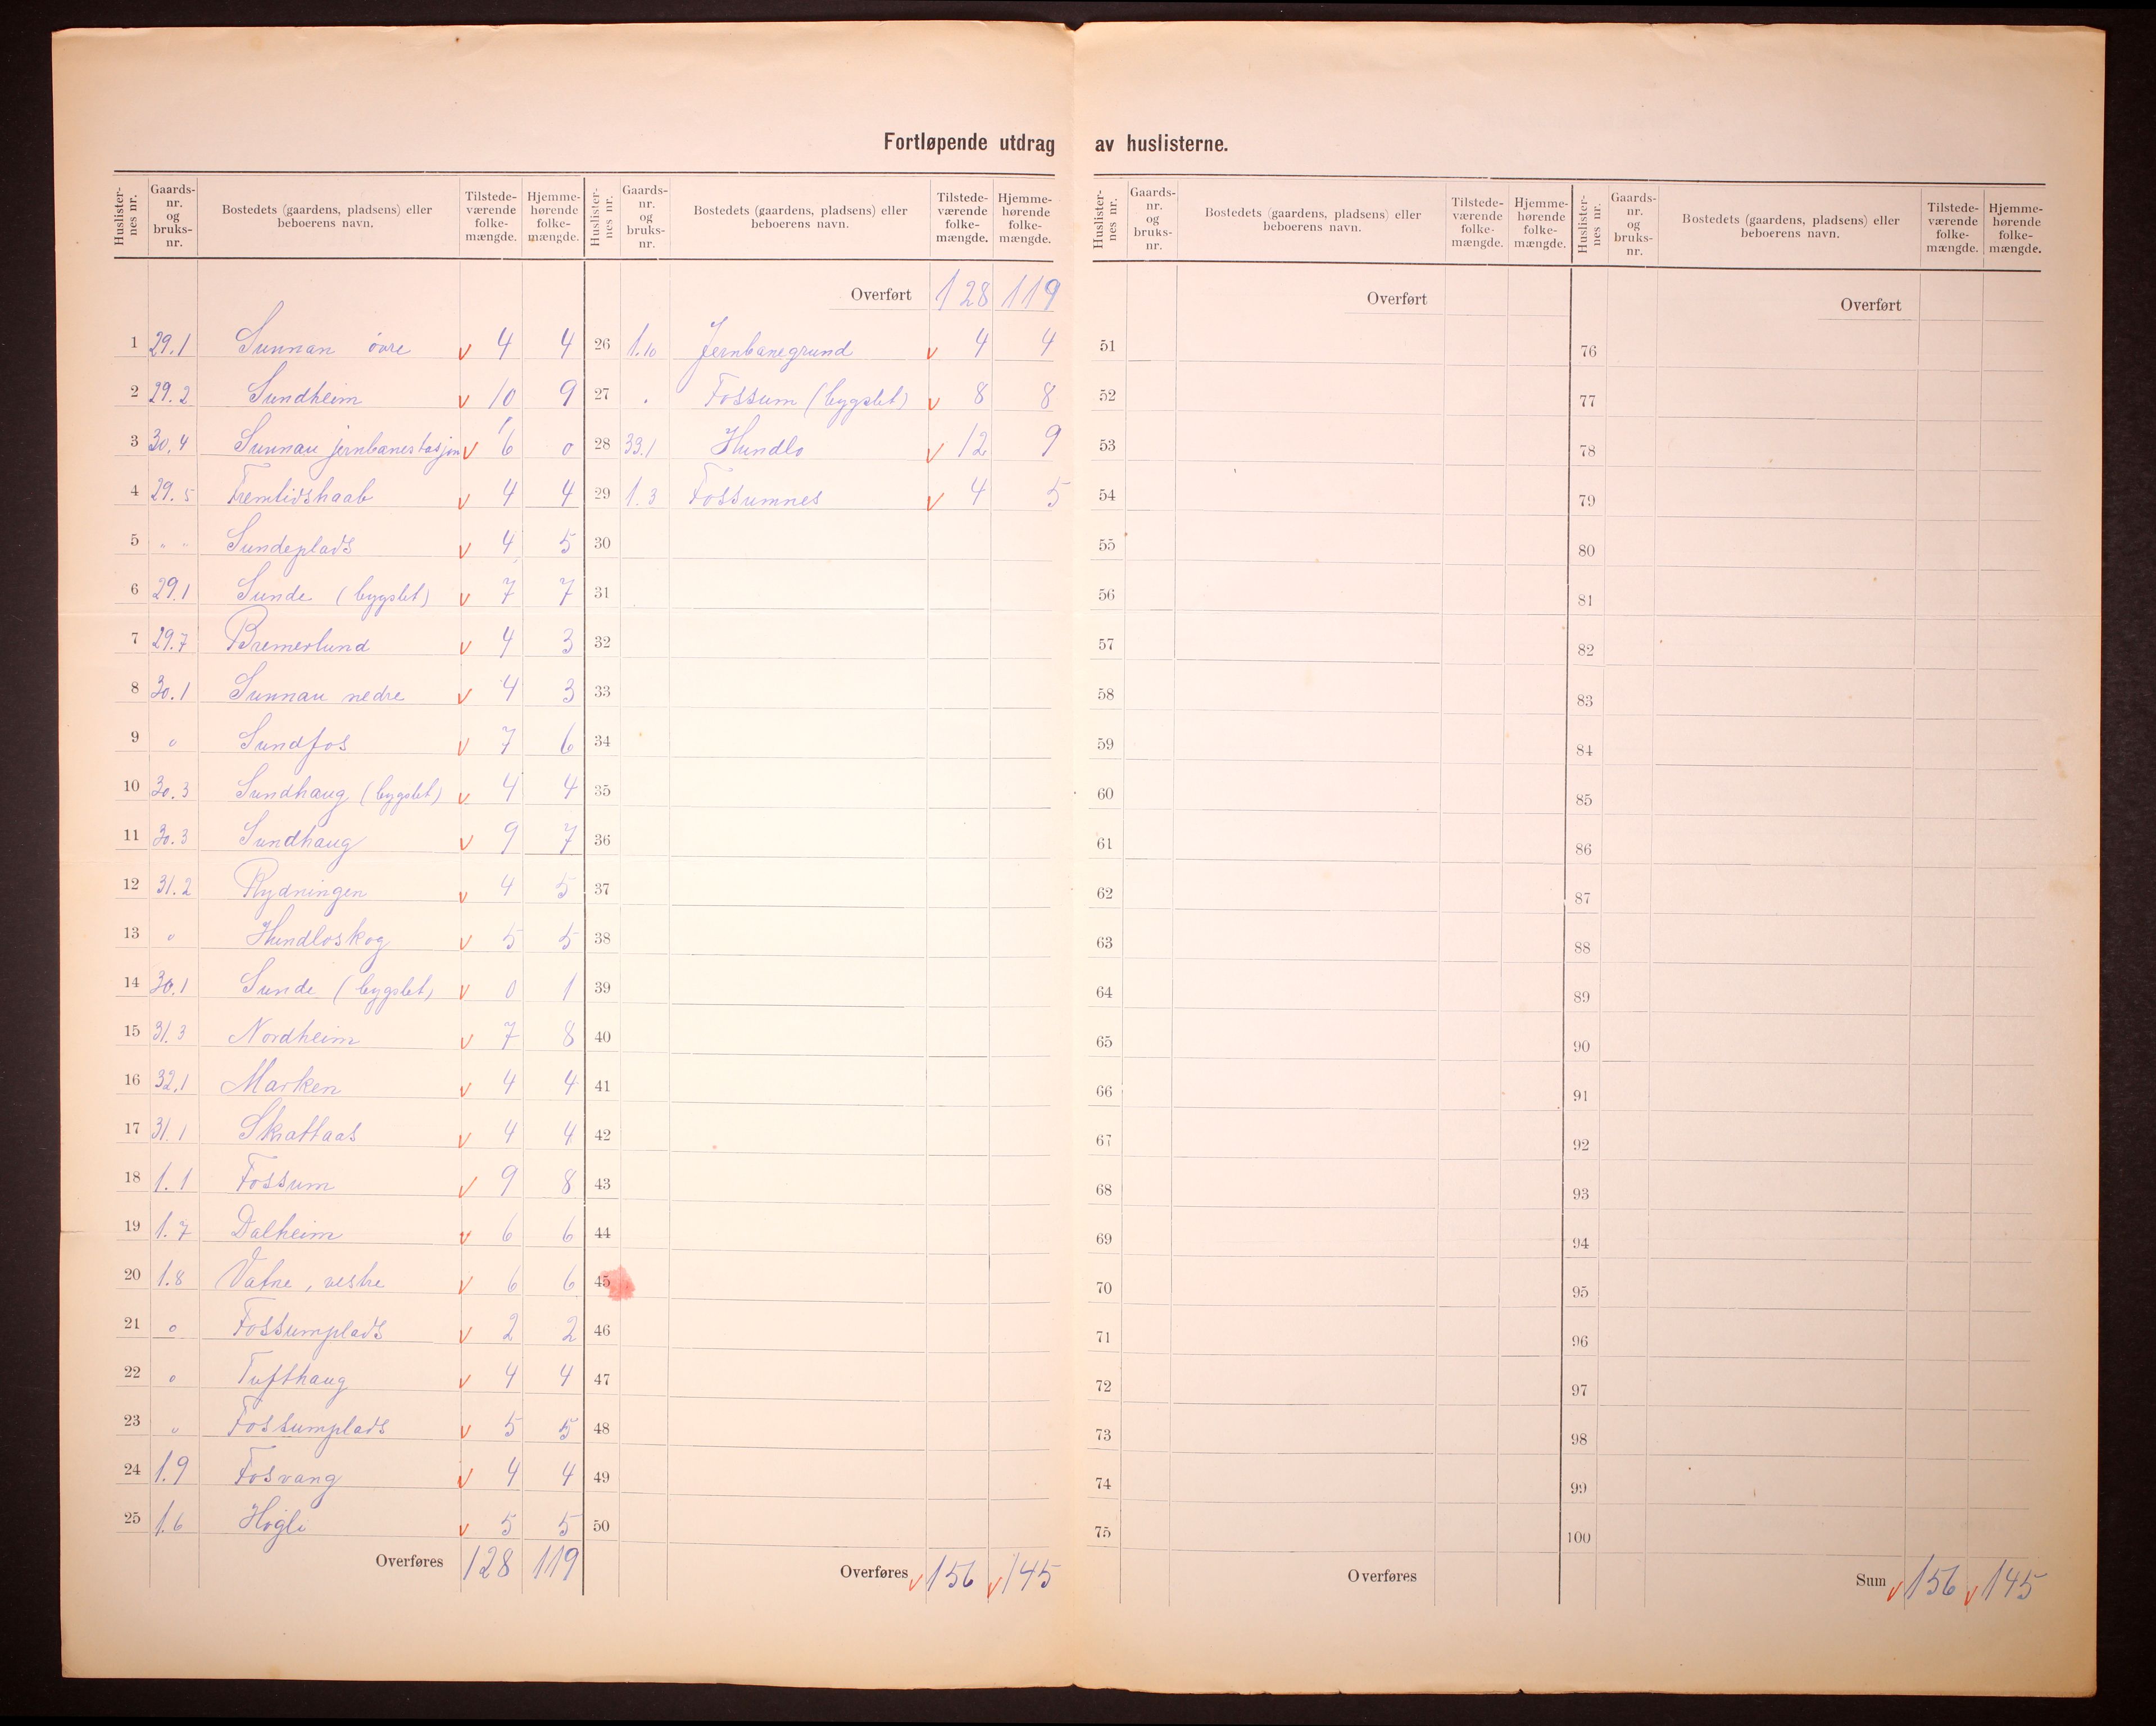 Fortløpende utdrag av huslisterne.
Huslisternes nr. Gaards-nr. og bruks-nr. Bostedets (gaardens, pladsens) eller beboerens navn. Tilstedeværende folkemængde. Hjemmehørende folkemængde.
1 29.1 Sunnan övre v 4 4
2 29.2 Sundheim v 10 9
3 30.4 Sunnan jernbanestasjon v 6 0
4 29.5 Fremtidshaab v 4 4
5 " " Sundeplads v 4 5
6 29.1 Sunde (bygslet) v 7 7
7 29.7 Bremerlund v 4 3
8 30.1 Sunnan nedre v 4 3
9 " Sundfos v 7 6
10 30.3 Sundhaug (bygslet) v 4 4
11 30.3 Sundhaug v 9 7
12 31.2 Rydningen v 4 5
13 " Hundloskog v 5 5
14 30.1 Sunde (bygslet) v 0 1
15 31.3 Nordheim v 7 8
16 32.1 Marken v 4 4
17 31.1 Skrattaas v 4 4
18 1.1 Fossum v 9 8
19 1.7 Dalheim v 6 6
20 1.8 Vatne, vestre v 6 6
21 " Fossumplads v 2 2
22 " Tufthaug v 4 4
23 " Fossumplads v 5 5
24 1.9 Fosvang v 4 4
25 1.6 Høgli v 5 5
Overføres 128 119
Huslisternes nr. Gaards-nr. og bruks-nr. Bostedets (gaardens, pladsens) eller beboerens navn. Tilstedeværende folkemængde. Hjemmehørende folkemængde.
Overført 128 119
26 1.10 Jernbanegrund v 4 4
27 . Fossum (bygslet) v 8 8
28 33.1 Hundlo v 12 9
29 1.3 Fossumnes v 4 5
30
31
32
33
34
35
36
37
38
39
40
41
42
43
44
45
46
47
48
49
50
Overføres v 156 v 145
Huslisternes nr. Gaards-nr. og bruks-nr. Bostedets (gaardens, pladsens) eller beboerens navn. Tilstedeværende folkemængde. Hjemmehørende folkemængde.
Overført
51
52
53
54
55
56
57
58
59
60
61
62
63
64
65
66
67
68
69
70
71
72
73
74
75
Overføres
Huslisternes nr. Gaards-nr. og bruks-nr. Bostedets (gaardens, pladsens) eller beboerens navn. Tilstedeværende folkemængde. Hjemmehørende folkemængde.
Overført
76
77
78
79
80
81
82
83
84
85
86
87
88
89
90
91
92
93
94
95
96
97
98
99
100
Sum v 156 v 145